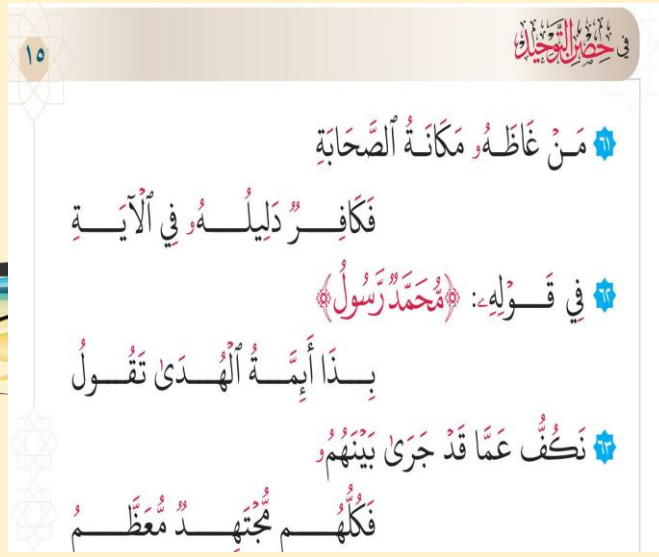 في حِصْنِ التَّوْحِيدِ
١٥
٦١ مَنْ غَاظَهُۥ مَكَانَةُ ٱلصَّحَابَةِ
فَكَافِرٌ دَلِيلُهُۥ فِي ٱلْآيَةِ
٦٢ فِي قَوْلِهِۦ: ﴿مُّحَمَّدٌ رَّسُولُ﴾
بِذَا أَئِمَّةُ ٱلْهُدَىٰ تَقُولُ
٦٣ نَكُفُّ عَمَّا قَدْ جَرَىٰ بَيْنَهُمُۥ
فَكُلُّهُم مُّجْتَهِدٌ مُّعَظَّمُ